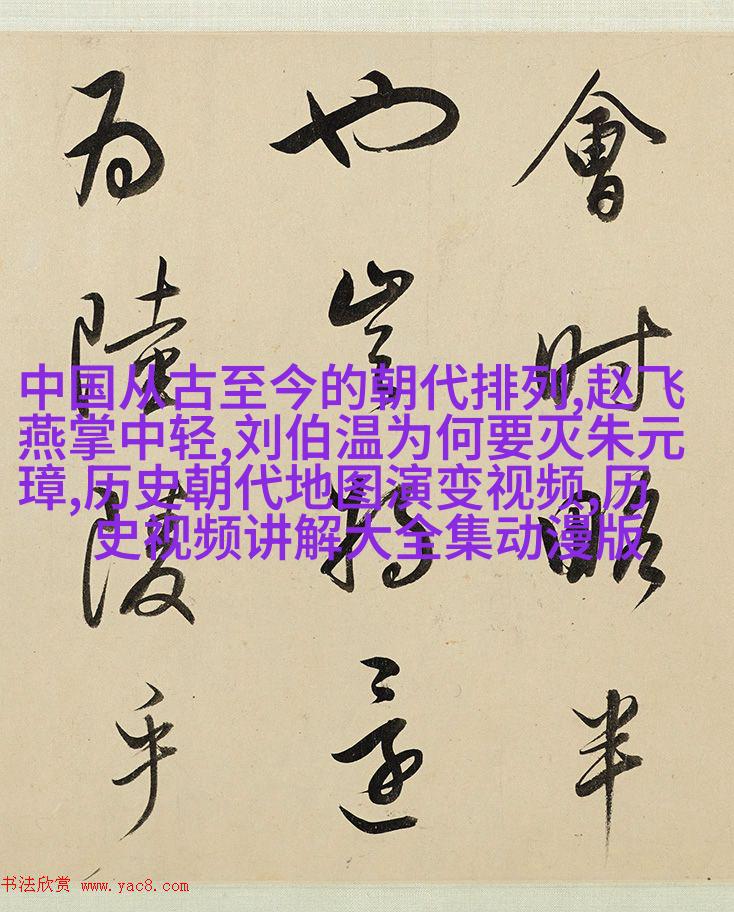 會时略半
也豈特還
为陸陵乎
中国从古至今的朝代排列,赵飞
燕掌中轻,刘伯温为何要灭朱元
璋,历史朝代地图演变视频,历
史视频讲解大全集动漫版
书法欣赏 www.yac8.com